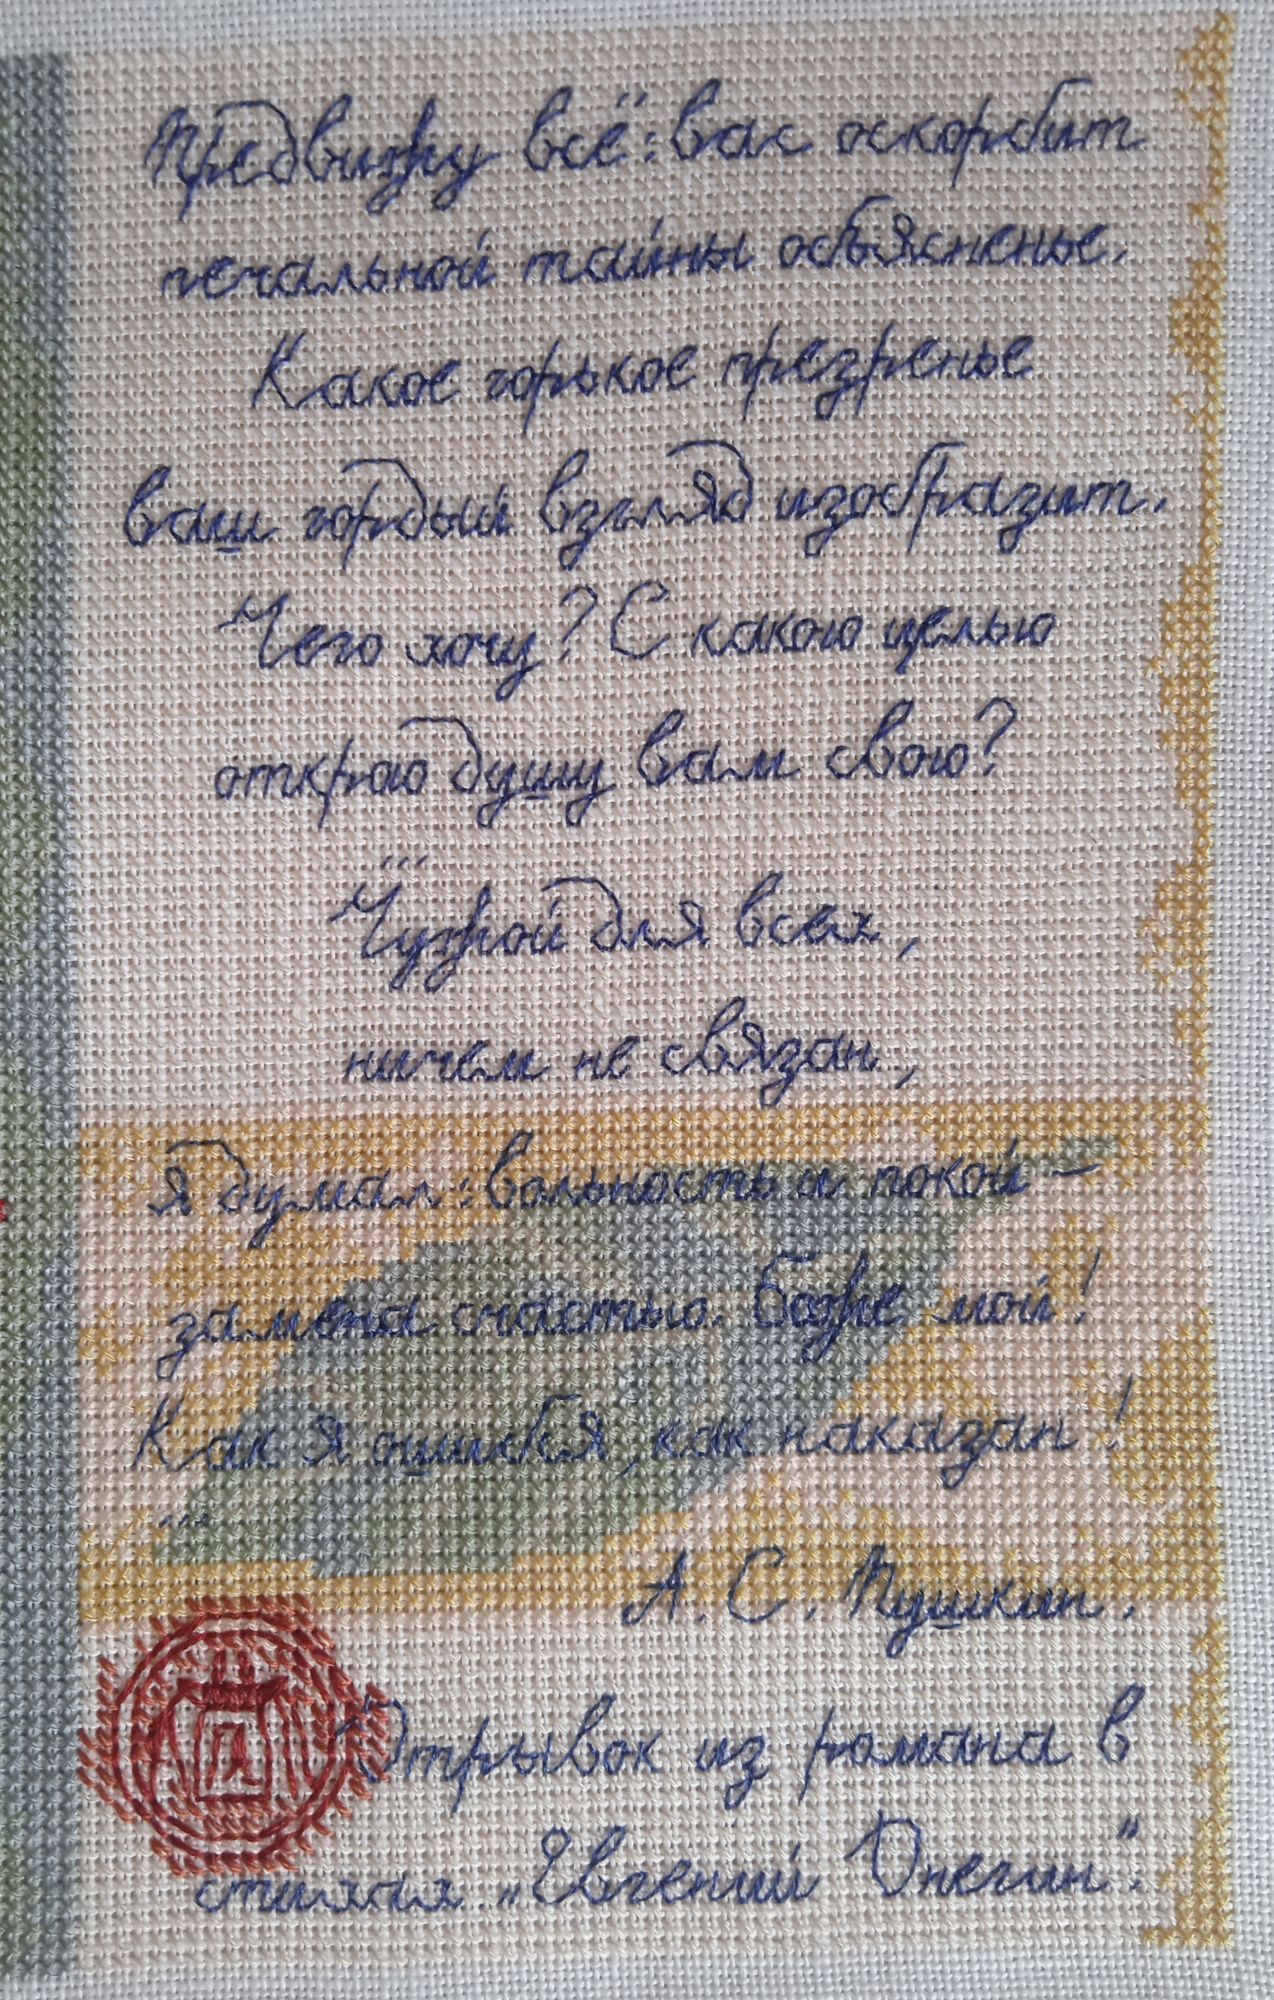 Предвижу всё: вас оскорбит
печальной тайны объясненье.
Какое горькое презренье
ваш гордый взгляд изобразит.
Чего хочу? С какою целью
открою душу вам свою?
...
Чужой для всех,
ничем не связан,
Я думал: вольность и покой —
замена счастью. Боже мой!
Как я ошибся, как наказан!
...
А. С. Пушкин.
Отрывок из романа в
стихах „Евгений Онегин".